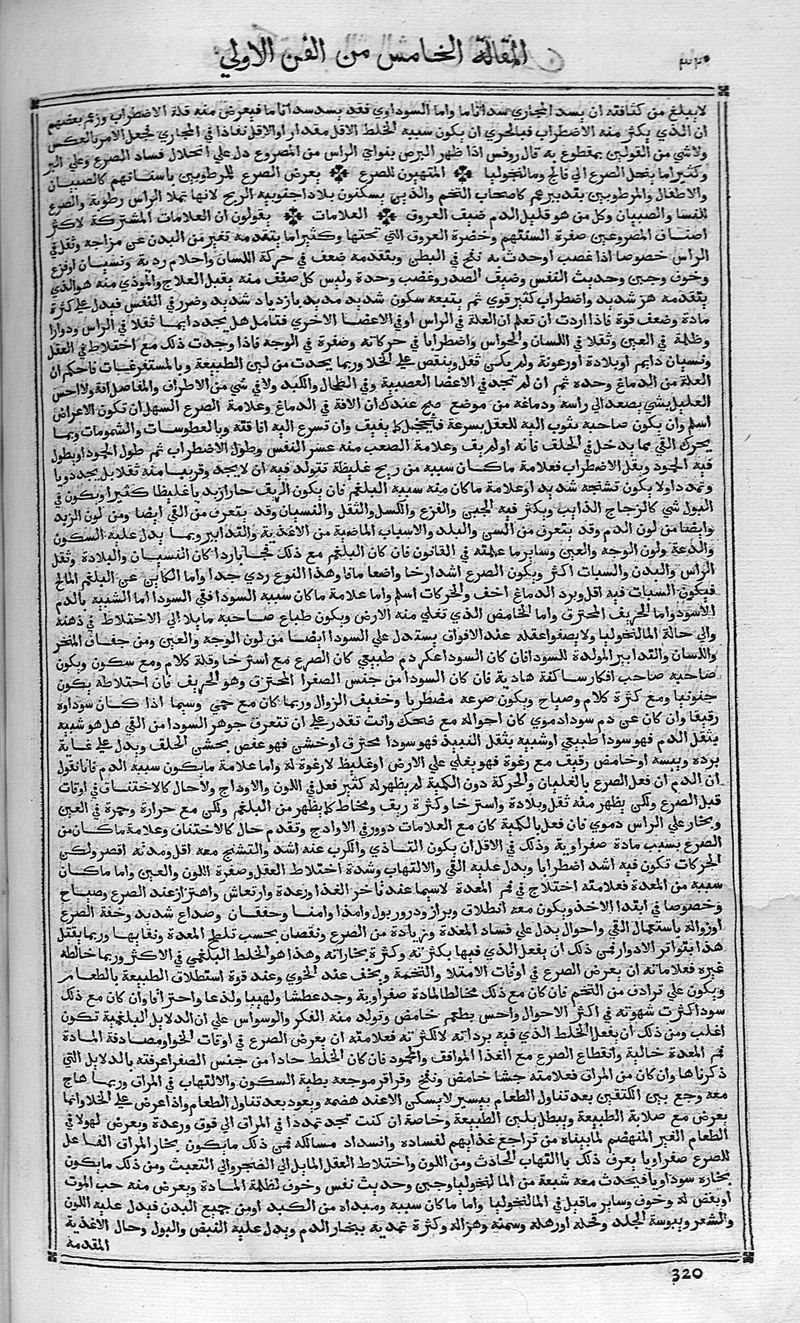 ٣٢٠
المقالة الخامس من الفن الاولي
لا يبلغ من كثافته ان يسد المجاري سدا تاما واما السوداوي فقد يسد سدا تاما فيعرض منه قلة الاضطراب وزعم بعضهم
ان الذي يكثر منه الاضطراب فبالحري ان يكون سببه الخلط الاقل مقدارا والاقل نفاذا في المجاري فجعل الامر بالعكس
ولا شي من القولين بمقطوع به قال روفس اذا ظهر البرص بنواي الراس من المصروع دل علي انحلال فساد الصرع وعلي البر
وكثيرا ما ينحل الصرع الي فالج ومالنخوليا المتهيون للصرع يعرض الصرع للمرطوبين باسنانهم كالصبيان
والاطفال والمرطوبين بتدبيرهم كاصحاب التخم والذين يسكنون بلادا جنوبية الريح لانها تملا الراس رطوبة والصرع
للنسا والصبيان وكل من هو قليل الدم ضيق العروق العلامات يقولون ان العلامات المشتركة لاكثر
اصناف المصروعين صفرة السنتهم وخضرة العروق التي تحتها وكثيرا ما يتقدمه تغير من البدن عن مزاجه وثقل في
الراس خصوصا اذا غضب او حدث به نفخ في البطن ويتقدمه ضعف في حركة اللسان واحلام ردية ونسيان او فزع
وخوف وجبن وحديث النفس وضيق الصدر وغضب وحدة وليس كل صنف منه يقبل العلاج والموذي منه هو الذي
يتقدمه هز شديد واضطراب كثير قوي ثم يتبعه سكون شديد مديد بازدياد شديد وضرر في التنفس فيدل علي كثرة
مادة وضعف قوة فاذا اردت ان تعلم ان العلة في الراس او في الاعضا الاخري فتامل هل يجد دايما ثقلا في الراس ودوارا
وظلمة في العين وثقلا في اللسان والحواس واضطرابا في حركاته وصفرة في الوجه فاذا وجدت ذلك مع اختلاط في العقل
ونسيان دايم او بلادة او رعونة ولم يكن ثقل وينقص علي الخلا وربما يحدث من لين الطبيعة وبالمستفرغات فاحكم ان
العلة من الدماغ وحده ثم ان لم تجد في الاعضا العصبية وفي الطحال والكبد ولا في شي من الاطراف والمفاصل افة ولا احس
العليل بشي يصعد الي راسه ودماغه من موضع صح عندك ان الافة في الدماغ وعلامة الصرع السهل ان تكون الاعراض
اسلم وان يكون صاحبه يثوب اليه العقل بسرعة فيخجل كما يفيق وان تسرع اليه افاقته وبالعطوسات والشمومات وبما
يحرك القي مما يدخل في الحلق قا به او لم يق وعلامة الصعب منه عسر النفس وطول الاضطراب ثم طول الخمود او يطول
فيه الخمود ويقل الاضطراب فعلامة ما كان سببه من ريح غليظة تتولد فيه ان لا يجد وقريبا منه ثقلا بل يجد دويا
وتمددا ولا يكون تشنجه شديدا وعلامة ما كان منه سببه البلغم فان يكون الريق حارا زبديا غليظا كثيرا ويكون في
البول شي كالزجاج الذايب ويكثر فيه الجبن والفزع والكسل والثقل والنسيان وقد يتعرف من القي ايضا ومن لون الزبد
وايضا من لون الدم وقد يتعرف من السن والبلد والاسباب الماضية من الاغذية والتدابير وبما يدل عليه السكون
والدعة ولون الوجه والعين وساير ما علمته في القانون فان كان البلغم مع ذلك فجا باردا كان النسيان والبلادة وثقل
الراس والبدن والسبات اكثر ويكون الصرع اشد ارخا واضعا مانا وهذا النوع ردي جدا واما الكاين عن البلغم المالح
فيكون السبات فيه اقل وبرد الدماغ اخف والحركات اسلم واما علامة ما كان سببه السودا ففي السودا اما الشبيه بالدم
الاسود واما الحريف المحترق واما الحامض الذي تغلي منه الارض ويكون طباع صاحبه مايلا الي الاختلاط في ذهنه
والي حالة المالنخوليا ولا يصفوا عقله عند الافواق يستدل علي السودا ايضا من لون الوجه والعين ومن جفاف المنخر
واللسان والتدابير المولدة للسودا فان كان السودا عكر دم طبيعي كان الصرع مع استرخا وقلة كلام ومع سكون ويكون
صاحبه صاحب افكار ساكنة هادية فان كان السودا من جنس الصفرا المحترق وهو الحريف فان اختلاطه يكون
جنونيا ومع كثرة كلام وصياح ويكون صرعه مضطربا وخفيف الزوال وربما كان مع حمي وسيما اذا كان سوداوه
رقيقا وان كان عن دم سوداوي كان احواله مع ضحك وانت تقدر علي ان تتعرف جوهر السودا من القي هل هو شبيه
بثقل الدم فهو سودا طبيعي او شبيه بثقل النبيذ فهو سودا محترق او خشن فهو عفص يخشن الحلق ويدل علي غاية
برده ويبسه او حامض رقيق مع رغوة فهو يغلي علي الارض او غليظ لا رغوة له واما علامة ما يكون سببه الدم فانا نقول
ان الدم ان فعل الصرع بالغليان والحركة دون الكمية لم يظهر له كثير فعل في اللون والاوداج ولا حال كالاختناق في اوقات
قبل الصرع ولكن يظهر منه ثقل وبلادة واسترخا وكثرة ريق ومخاط كما يظهر من البلغم ولكن مع حرارة وحمرة في العين
وبخار علي الراس دموي فان فعل بالكمية كان مع العلامات دوور في الاوداج وتقدم حال كالاختناق وعلامة ما كان من
الصرع بسبب مادة صفراوية وذلك في الاقل ان يكون التاذي والكرب عنه اشد والتشنج معه اقل ومدته اقصر ولكن
الحركات تكون فيه اشد اضطرابا ويدل عليه القي والالتهاب وشدة اختلاط العقل وصفرة اللون والعين واما ما كان
سببه من المعدة فعلامته اختلاج في فم المعدة لا سيما عند تاخر الغذا ورعدة وارتعاش واهتزاز عند الصرع وصياح
وخصوصا في ابتدا الاخذ ويكون معه انطلاق وبراز ودرور بول وامذا وامنا وخفقان وصداع شديد وخفة الصرع
او زواله باستعمال القي واحوال يدل علي فساد المعدة وزيادة من الصرع ونقصان بحسب تلطخ المعدة ونقايها وربما يقتل
هذا بتواتر الادوار فمن ذلك ان يفعل الذي فيها بكثرته وكثرة بخاراته وهذا هو الخلط البلغمي في الاكثر وربما خالطه
غيره فعلاماته ان يعرض الصرع في اوقات الامتلا والتخمة ويخف عند الخوي وعند قوة استطلاق الطبيعة بالطعام
ويكون علي ترادف من التخم فان كان مع ذلك مخالطا لمادة صفراوية وجد عطشا ولهيبا ولذعا واحتراقا وان كان مع ذلك
سودا كثرت شهوته في اكثر الاحوال واحس بطعم حامض وتولد منه الفكر والوسواس علي ان الدلايل البلغمية تكون
اغلب ومن ذلك ان يفعل الخلط الذي فيه برداته لا لكثرته فعلامته ان يعرض الصرع في اوقات الخوا ومصادفة المادة
فم المعدة خالية وانقطاع الصرع مع الغذا الموافق والمحمود فان كان الخلط حادا من جنس الصفرا عرفته بالدلايل التي
ذكرناها وان كان من المراق فعلامته جشا حامض ونفخ وقراقر موجعه بطية السكون والالتهاب في المراق وربما هاج
معه وجع بين الكتفين بعد تناول الطعام بيسير لا يسكن الا عند هضمه ويعود بعد تناول الطعام واذا عرض علي الخلا وانما
يعرض مع صلابة الطبيعة ويبطل بلين الطبيعة وخاصة ان كنت تجد تمددا في المراق الي فوق ورعدة ويعرض لهولا في
الطعام الغير المنهضم لما بيناه من تراجع غذايهم لفساده وانسداد مسالكه فمن ذلك ما يكون بخار المراق الفاعل
للصرع صفراويا يعرف ذلك بالتهاب الحادث ومن اللون واختلاط العقل المايل الي الضجر والي التعبث ومن ذلك ما يكون
بخاره سوداويا فيحدث معه شيعة من المالنخوليا وجبن وحديث نفس وخوف لظلمة المادة ويعرض منه حب الموت
او بغض له وخوف وساير ما قيل في المالنخوليا واما ما كان سببه ومبداه من الكبد او من جميع البدن فيدل عليه اللون
والشعر ويبوسة الجلد وقحله او رهله وسمنه وهزاله وكثرة تمدية ببخار الدم ويدل عليه النبض والبول وحال الاغذية
المقدمة
320